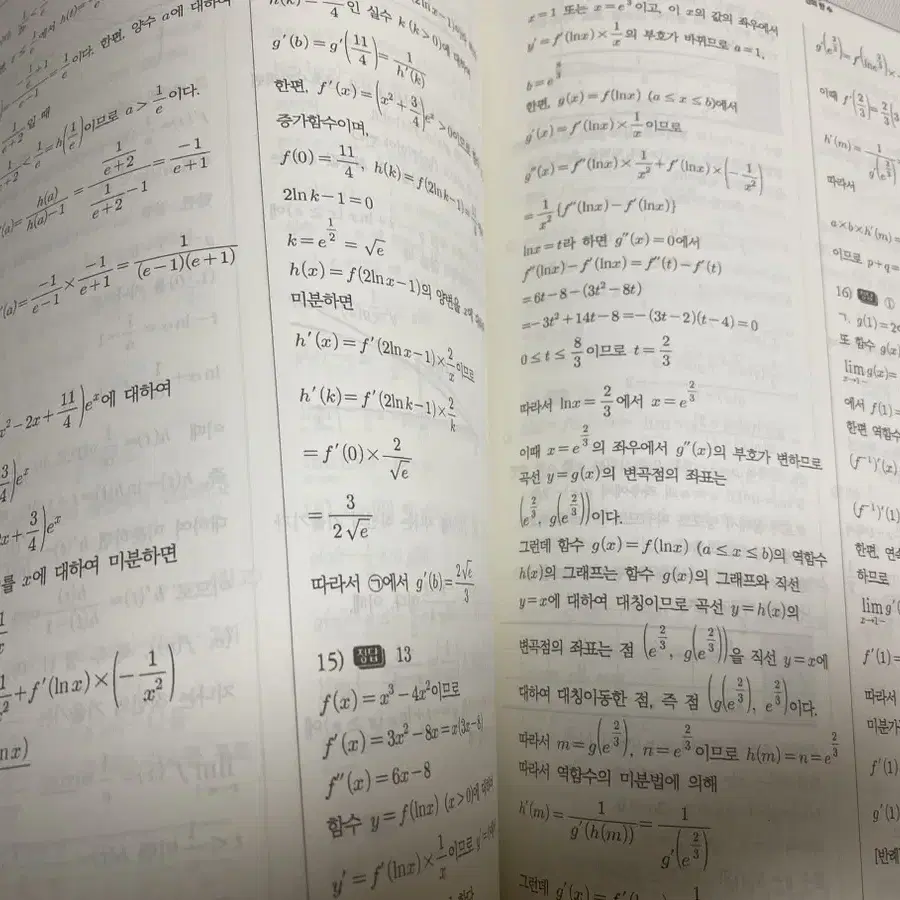 \frac{1}{e+2} < \frac{1}{e} = h\left(\frac{1}{e}\right)이므로 a > \frac{1}{e}이다.
(a) = \frac{h(a)}{h(a)-1} = \frac{\frac{1}{e+2}}{\frac{1}{e+2}-1} = \frac{-1}{e+1}
'(a) = \frac{-1}{e-1} \times \frac{-1}{e+1} = \frac{1}{(e-1)(e+1)}
x^2-2x+\frac{11}{4}\right)e^x에 대하여
\frac{3}{4}\right)e^x
x+\frac{3}{4}\right)e^x
를 x에 대하여 미분하면
+f'(\ln x)\times\left(-\frac{1}{x^2}\right)
인 실수 k (k>0)에 대하여
g'(b)=g'\left(\frac{11}{4}\right)=\frac{1}{h'(k)}
한편, f'(x)=\left(x^2+\frac{3}{4}\right)e^x>0이므로
증가함수이며,
f(0)=\frac{11}{4}, h(k)=f(2\ln k-1)=
2\ln k-1=0
k=e^{\frac{1}{2}}=\sqrt{e}
h(x)=f(2\ln x-1)의 양변을
미분하면
h'(x)=f'(2\ln x-1)\times\frac{2}{x}이므로
h'(k)=f'(2\ln k-1)\times\frac{2}{k}
=f'(0)\times\frac{2}{\sqrt{e}}
=\frac{3}{2\sqrt{e}}
따라서 ㉠에서 g'(b)=\frac{2\sqrt{e}}{3}
15) 정답 13
f(x)=x^3-4x^2이므로
f'(x)=3x^2-8x=x(3x-8)
f''(x)=6x-8
함수 y=f(\ln x) (x>0)에
y'=f'(\ln x)\times\frac{1}{x}이므로
x=1 또는 x=e^{\frac{8}{3}}이고, 이 x의 값의 좌우에서
y'=f'(\ln x)\times\frac{1}{x}의 부호가 바뀌므로 a=1,
b=e^{\frac{8}{3}}
한편, g(x)=f(\ln x) (a≤x≤b)에서
g'(x)=f'(\ln x)\times\frac{1}{x}이므로
g''(x)=f''(\ln x)\times\frac{1}{x^2}+f'(\ln x)\times\left(-\frac{1}{x^2}\right)
=\frac{1}{x^2}\{f''(\ln x)-f'(\ln x)\}
\ln x=t라 하면 g''(x)=0에서
f''(\ln x)-f'(\ln x)=f''(t)-f'(t)
=6t-8-(3t^2-8t)
=-3t^2+14t-8=-(3t-2)(t-4)=0
0≤t≤\frac{8}{3}이므로 t=\frac{2}{3}
따라서 \ln x=\frac{2}{3}에서 x=e^{\frac{2}{3}}
이때 x=e^{\frac{2}{3}}의 좌우에서 g''(x)의 부호가 변하므로
곡선 y=g(x)의 변곡점의 좌표는
\left(e^{\frac{2}{3}}, g\left(e^{\frac{2}{3}}\right)\right)이다.
그런데 함수 g(x)=f(\ln x) (a≤x≤b)의 역함수
h(x)의 그래프는 함수 g(x)의 그래프와 직선
y=x에 대하여 대칭이므로 곡선 y=h(x)의
변곡점의 좌표는 점 \left(e^{\frac{2}{3}}, g\left(e^{\frac{2}{3}}\right)\right)을 직선 y=x에
대하여 대칭이동한 점, 즉 점 \left(g\left(e^{\frac{2}{3}}\right), e^{\frac{2}{3}}\right)이다.
따라서 m=g\left(e^{\frac{2}{3}}\right), n=e^{\frac{2}{3}}이므로 h(m)=n=e^{\frac{2}{3}}
따라서 역함수의 미분법에 의해
h'(m)=\frac{1}{g'(h(m))}=\frac{1}{g'\left(e^{\frac{2}{3}}\right)}
그런데 g'(x)=f'(\ln
g'\left(e^{\frac{2}{3}}\right)=f'
이때 f'\left(\frac{2}{3}\right)=\frac{2}{3}
h'(m)=\frac{1}{g'\left(e^{\frac{2}{3}}\right)}
따라서
a×b×h'(m)=
이므로 p+q=
16) 정답 ①
ㄱ. g(1)=2
또 함수 g(x)
\lim_{x→1-}g(x)=
에서 f(1)=
한편 역함수
(f^{-1})'(x)
(f^{-1})'(1)
한편, 연속
하므로
\lim_{x→1-}g'(
f'(1)=
따라서
미분가
f'(1)
g'(1)
[반례]